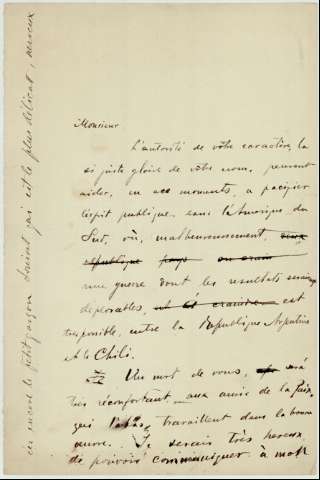 Monsieur
L'autorité de votre caractère, la
si juste gloire de votre nom, peuvent
aider, en ces moments, a pacifier
l'esprit publique dans l'Amerique du
Sud, où, malheureusement,
republique pays on craint
une guerre dont les resultats seraient
deporables, est
très possible, entre la Republique Argentine
et le Chili.
Un mot de vous, será
très réconfortant aux amis de la Paix,
qui travaillent dans la bonne
œuvre. Je serais très hereux
de pouvoir communiquer à mon
encore le petit garçon Louizat qui est le plus délicat, nerveux